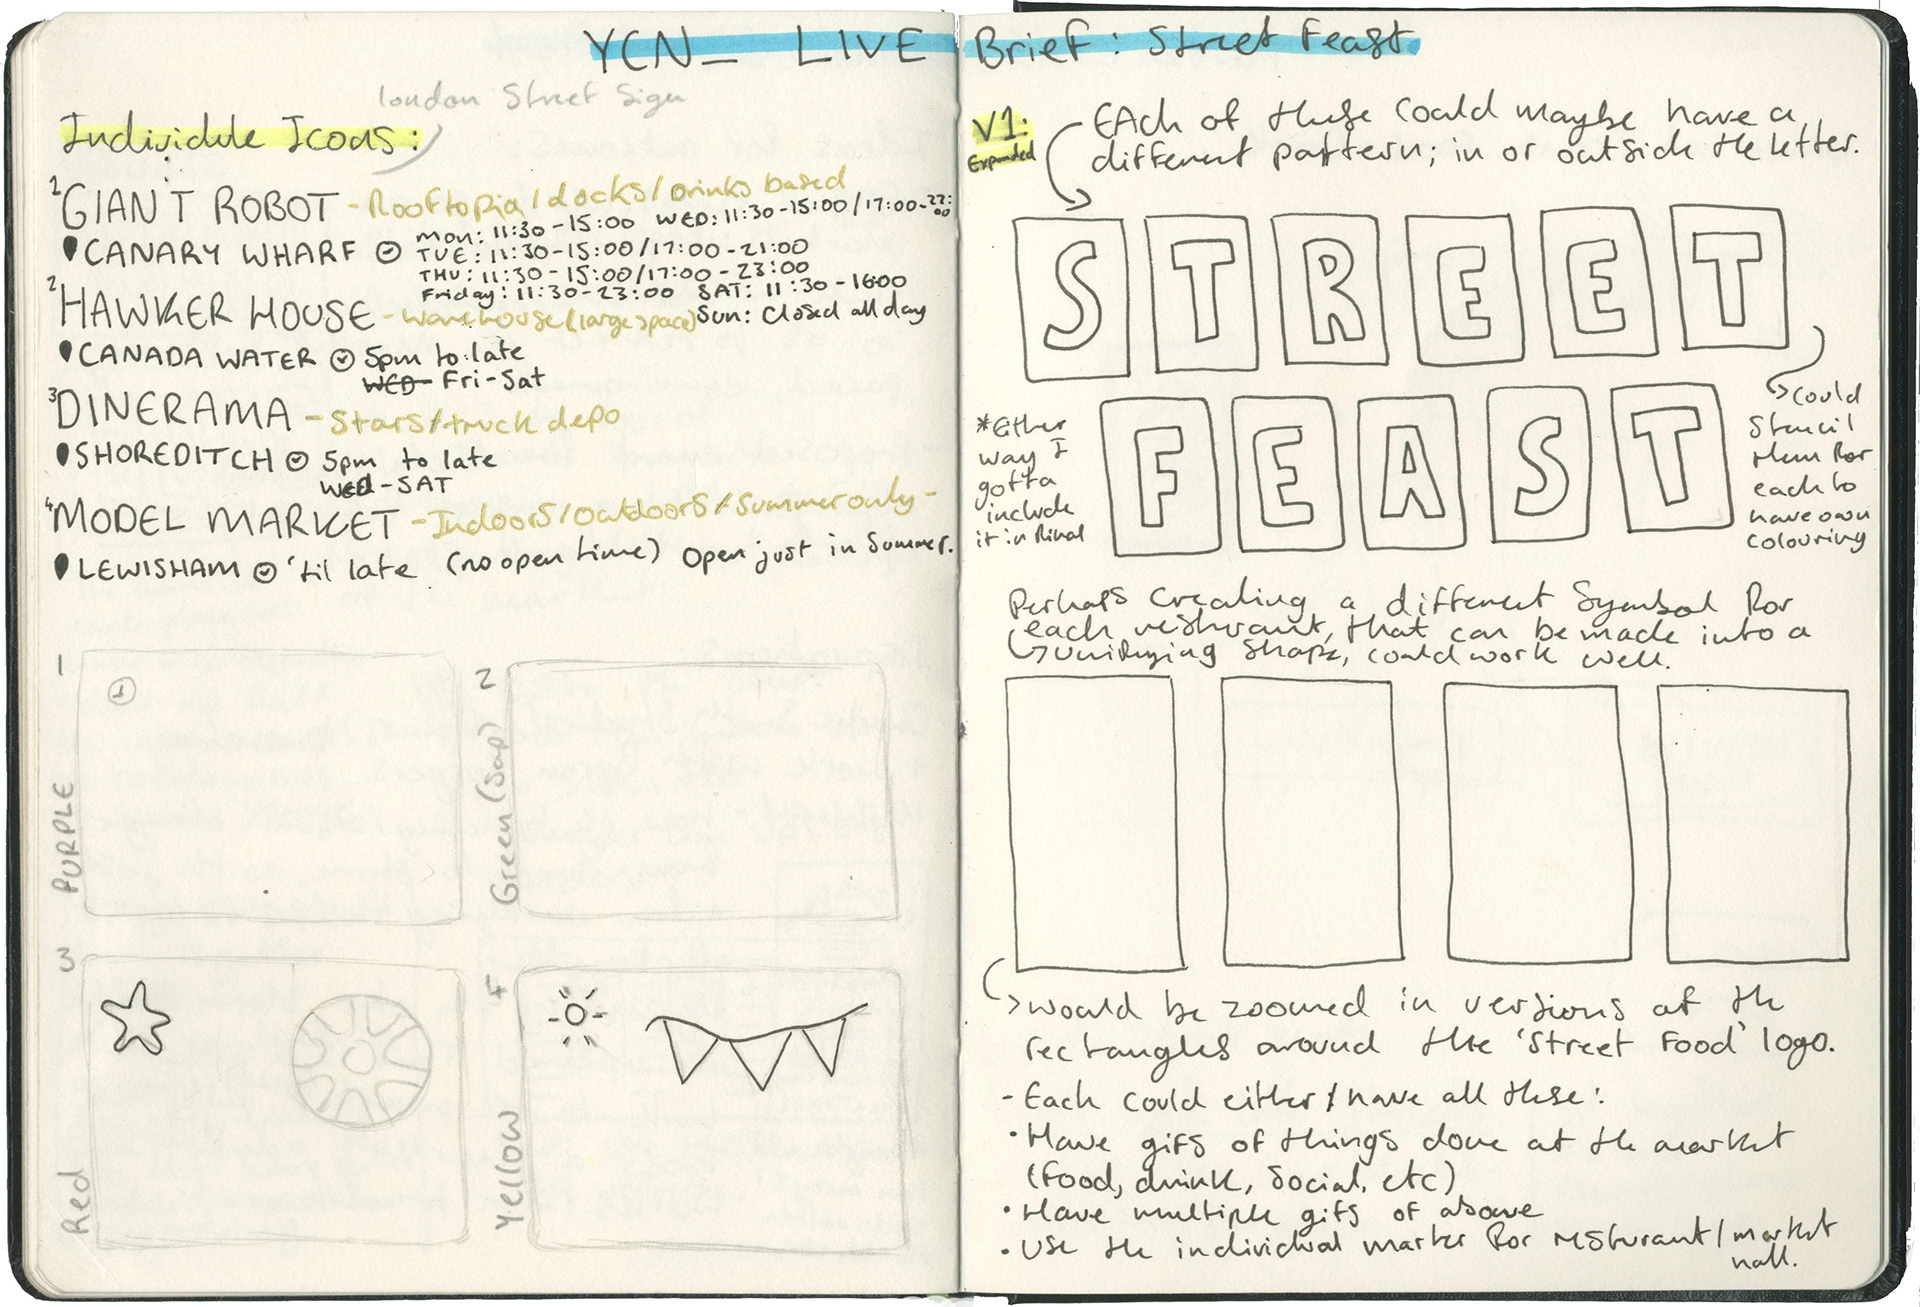 YCN_ LIVE Brief: Street Feast
london Street Sign
Individule Icons:
1 GIANT ROBOT - Rooftopia/docks/Drinks based
CANARY WHARF
Mon: 11:30-15:00 WED: 11:30-15:00/17:00-22:00
TUE: 11:30-15:00/17:00-21:00
THU: 11:30-15:00/17:00-23:00
Friday: 11:30-23:00 SAT: 11:30-16:00
Sun: Closed all day
2 HAWKER HOUSE - Warehouse (large space)
CANADA WATER 5pm to late
WED Fri-Sat
3 DINERAMA - Stars/truck depo
SHOREDITCH 5pm to late
WED-SAT
4 MODEL MARKET - Indoors/outdoors/Summer only-
LEWISHAM 'til late (no open time) Open just in Summer.
1
PURPLE
2
Green (Sap)
3
Red
4
Yellow
V1:
Expanded
EAch of these could maybe have a
different pattern; in or outside the letter.
STREET
FEAST
*Either
way I
gotta
include
it in final
could
Stencil
them for
each to
have own
colouring
Perhaps creating a different Symbol for
each resturant, that can be made into a
unifying shape, could work well.
would be zoomed in versions of the
rectangles around the 'Street Food' logo.
- Each could either/have all these:
• Have gifs of things done at the market
(food, drink, social, etc)
• Have multiple gifs of above
• Use the individual marker for resturant/market
hall.